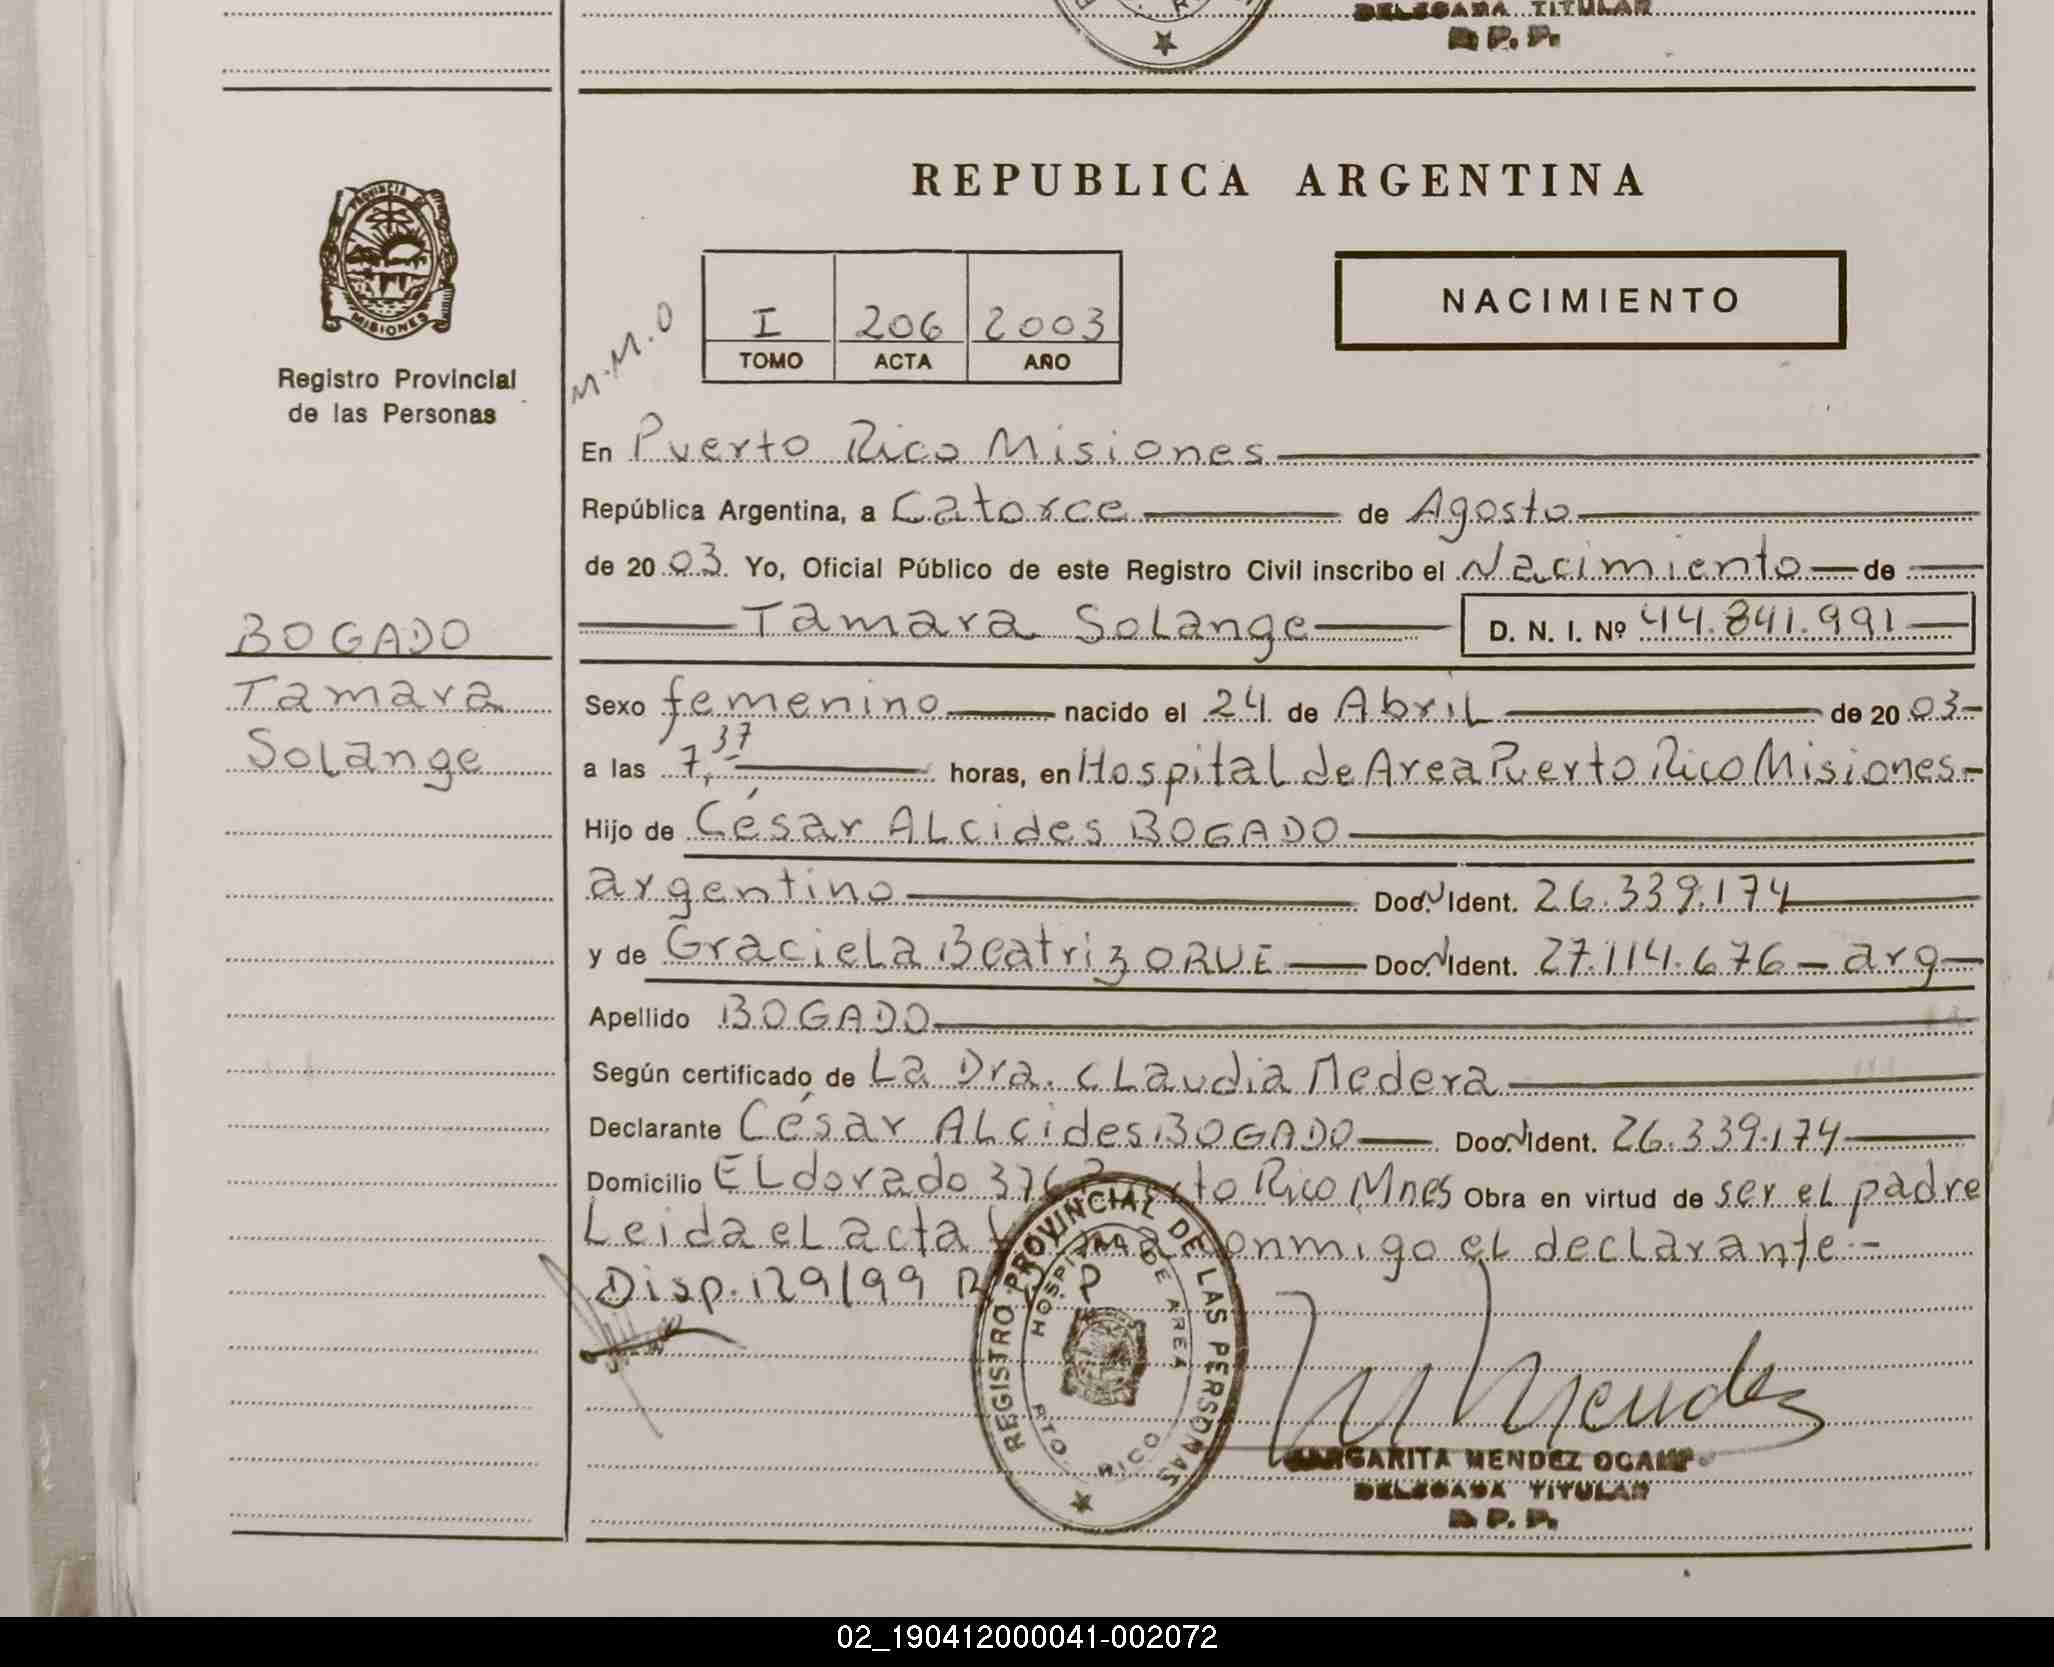 DELEGADA TITULAR
R. P. P.
REPUBLICA ARGENTINA
PROVINCIA DE
MISIONES
Registro Provincial
de las Personas
M.M.O
I 206 2003
TOMO ACTA AÑO
NACIMIENTO
En Puerto Rico Misiones
República Argentina, a Catorce de Agosto
de 2003 Yo, Oficial Público de este Registro Civil inscribo el Nacimiento de
Tamara Solange D. N. I. Nº 44.841.991
BOGADO
Tamara
Solange
Sexo femenino nacido el 24 de Abril de 2003
a las 7,37 horas, en Hospital de Area Puerto Rico Misiones
Hijo de César Alcides BOGADO
argentino Doc. Ident. 26.339.174
y de Graciela Beatriz ORUE Doc. Ident. 27.114.676 - arg
Apellido BOGADO
Según certificado de La Dra. Claudia Medera
Declarante César Alcides BOGADO Doc. Ident. 26.339.174
Domicilio ELdorado Rico Mnes Obra en virtud de ser el padre
Leida el acta conmigo el declarante.-
Disp. 129/99 R P
REGISTRO PROVINCIAL DE LAS PERSONAS
HOSPITAL DE AREA
PTO. RICO
M Mendez
MARGARITA MENDEZ OCAMPO
DELEGADA TITULAR
R. P. P.
02_190412000041-002072